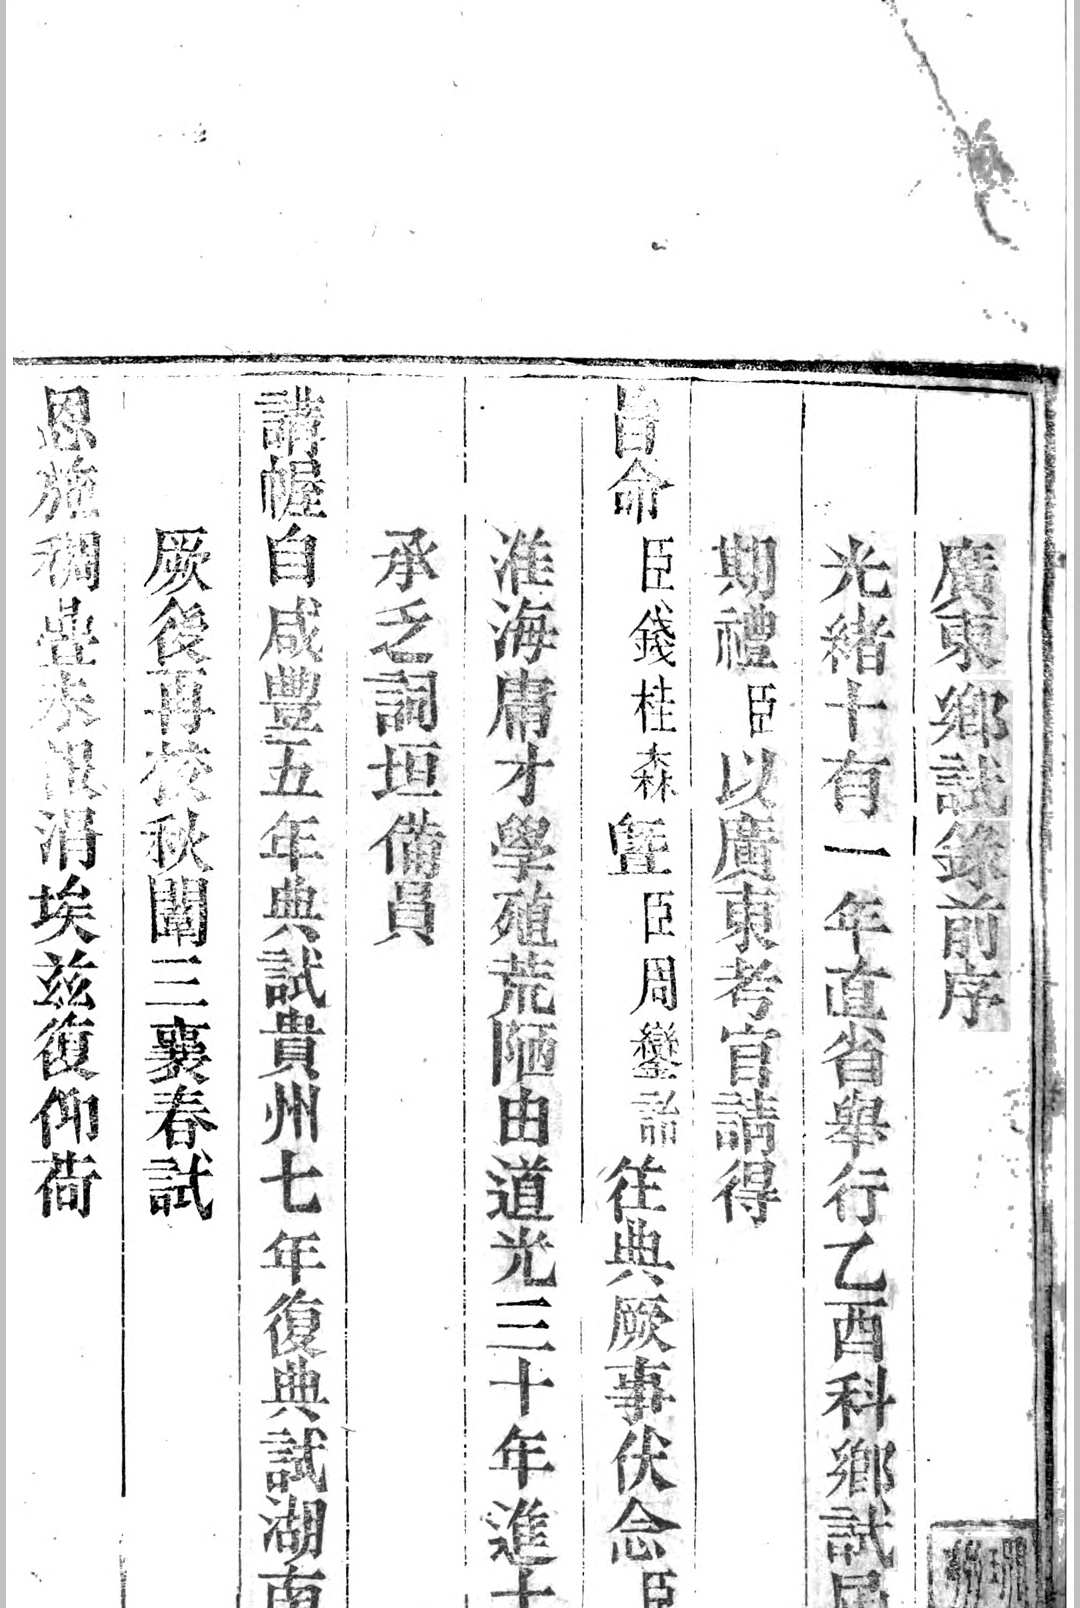 廣東鄉試錄前序
光緒十有一年直省舉行乙酉科鄉試屆
期禮臣以廣東考官請得
旨命臣錢桂森暨臣周鑾詒往典厥事伏念臣
淮海庸才學殖荒陋由道光三十年進士
承乏詞垣備員
講幄自咸豐五年典試貴州七年復典試湖南
厥後再校秋闈三襄春試
恩施稠疊未報涓埃兹復仰荷